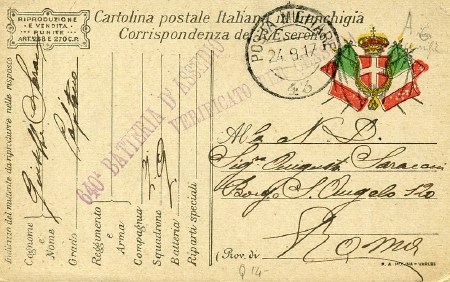 RIPRODUZIONE
E VENDITA
PUNITE
ART. 268 E 270 C.P.
Cartolina postale Italiana in franchigia
Corrispondenza del R. Esercito
POSTA MILITARE
24.9.17
43
640ª BATTERIA D'ASSEDIO
VERIFICATO
Indirizzo del mittente da riprodurre nelle risposte
Cognome
e
Nome
Grado
Reggimento
e
Arma
Compagnia
Squadrone
Batteria
Riparti speciali
Alla N. D.
Sig.ra Augusta Saraceni
Borgo S. Angelo 130
(Prov. di
Roma
Q 14-